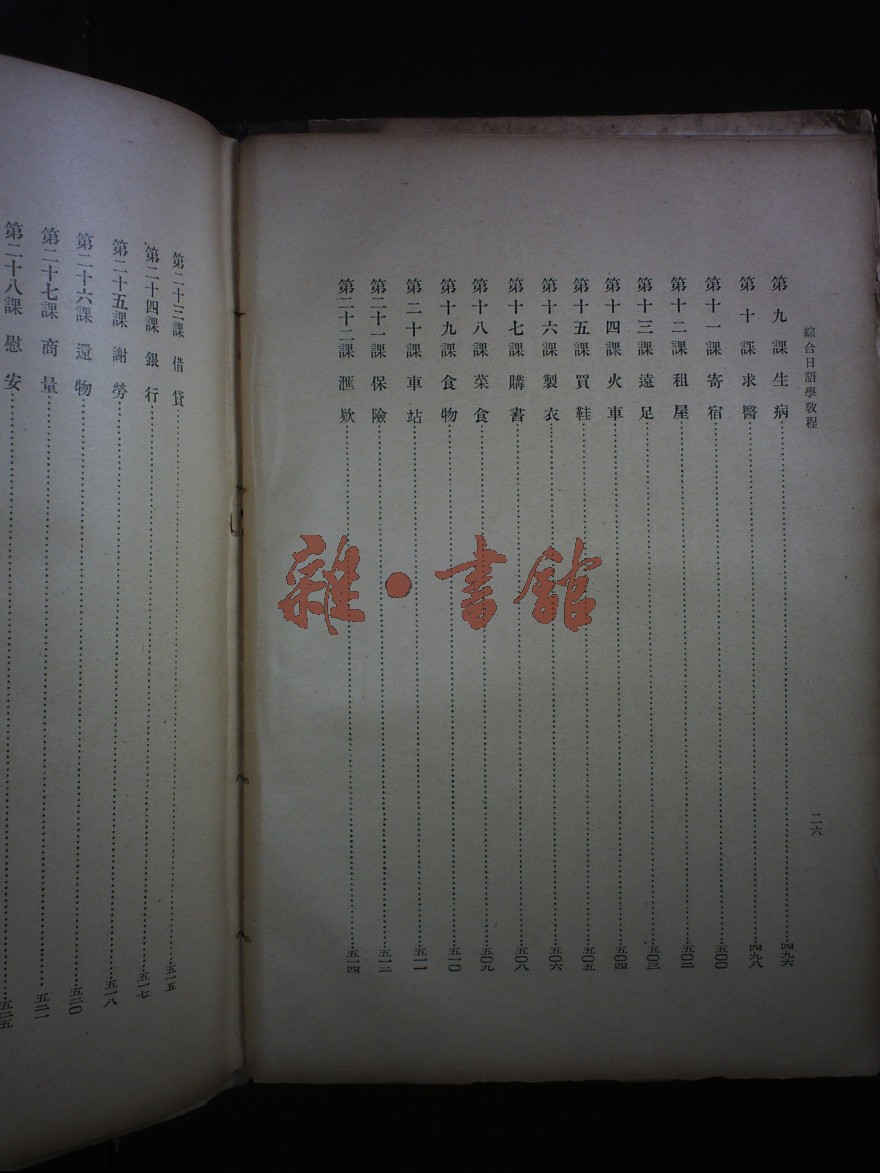 綜合日語學敎程
二六
第九課 生病 四九六
第十課 求醫 四九八
第十一課 寄宿 五〇〇
第十二課 租屋 五〇二
第十三課 遠足 五〇三
第十四課 火車 五〇四
第十五課 買鞋 五〇五
第十六課 製衣 五〇六
第十七課 購書 五〇八
第十八課 菜食 五〇九
第十九課 食物 五一〇
第二十課 車站 五一一
第二十一課 保險 五一二
第二十二課 滙欵 五一四
第二十三課 借貸 五一五
第二十四課 銀行 五一七
第二十五課 謝勞 五一八
第二十六課 還物 五二〇
第二十七課 商量 五二一
第二十八課 慰安 五二五
雜·書館